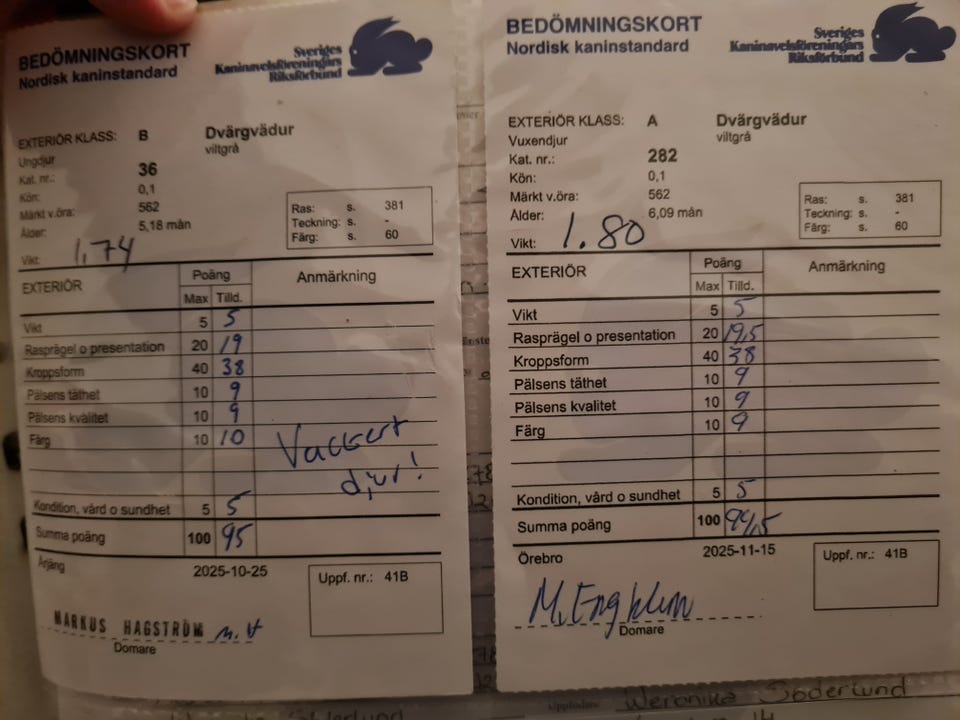 BEDÖMNINGSKORT
Nordisk kaninstandard
Sveriges
Kaninavelsföreningars
Riksförbund
EXTERIÖR KLASS: B Dvärgvädur
Ungdjur viltgrå
Kat. nr.: 36
Kön: 0,1
Märkt v.öra: 562
Ålder: 5,18 mån
Vikt: 1,74
Ras: s. 381
Teckning: s. -
Färg: s. 60
EXTERIÖR Poäng Anmärkning
Max Tilld.
Vikt 5 5
Rasprägel o presentation 20 19
Kroppsform 40 38
Pälsens täthet 10 9
Pälsens kvalitet 10 9
Färg 10 10
Vackert
djur!
Kondition, vård o sundhet 5 5
Summa poäng 100 95
Årjäng 2025-10-25
Uppf. nr.: 41B
MARKUS HAGSTRÖM M.H
Domare
BEDÖMNINGSKORT
Nordisk kaninstandard
Sveriges
Kaninavelsföreningars
Riksförbund
EXTERIÖR KLASS: A Dvärgvädur
Vuxendjur viltgrå
Kat. nr.: 282
Kön: 0,1
Märkt v.öra: 562
Ålder: 6,09 mån
Vikt: 1.80
Ras: s. 381
Teckning: s. -
Färg: s. 60
EXTERIÖR Poäng Anmärkning
Max Tilld.
Vikt 5 5
Rasprägel o presentation 20 19,5
Kroppsform 40 38
Pälsens täthet 10 9
Pälsens kvalitet 10 9
Färg 10 9
Kondition, vård o sundhet 5 5
Summa poäng 100 94,5
Örebro 2025-11-15
Uppf. nr.: 41B
M. Engblom
Domare
Weronika Söderlund